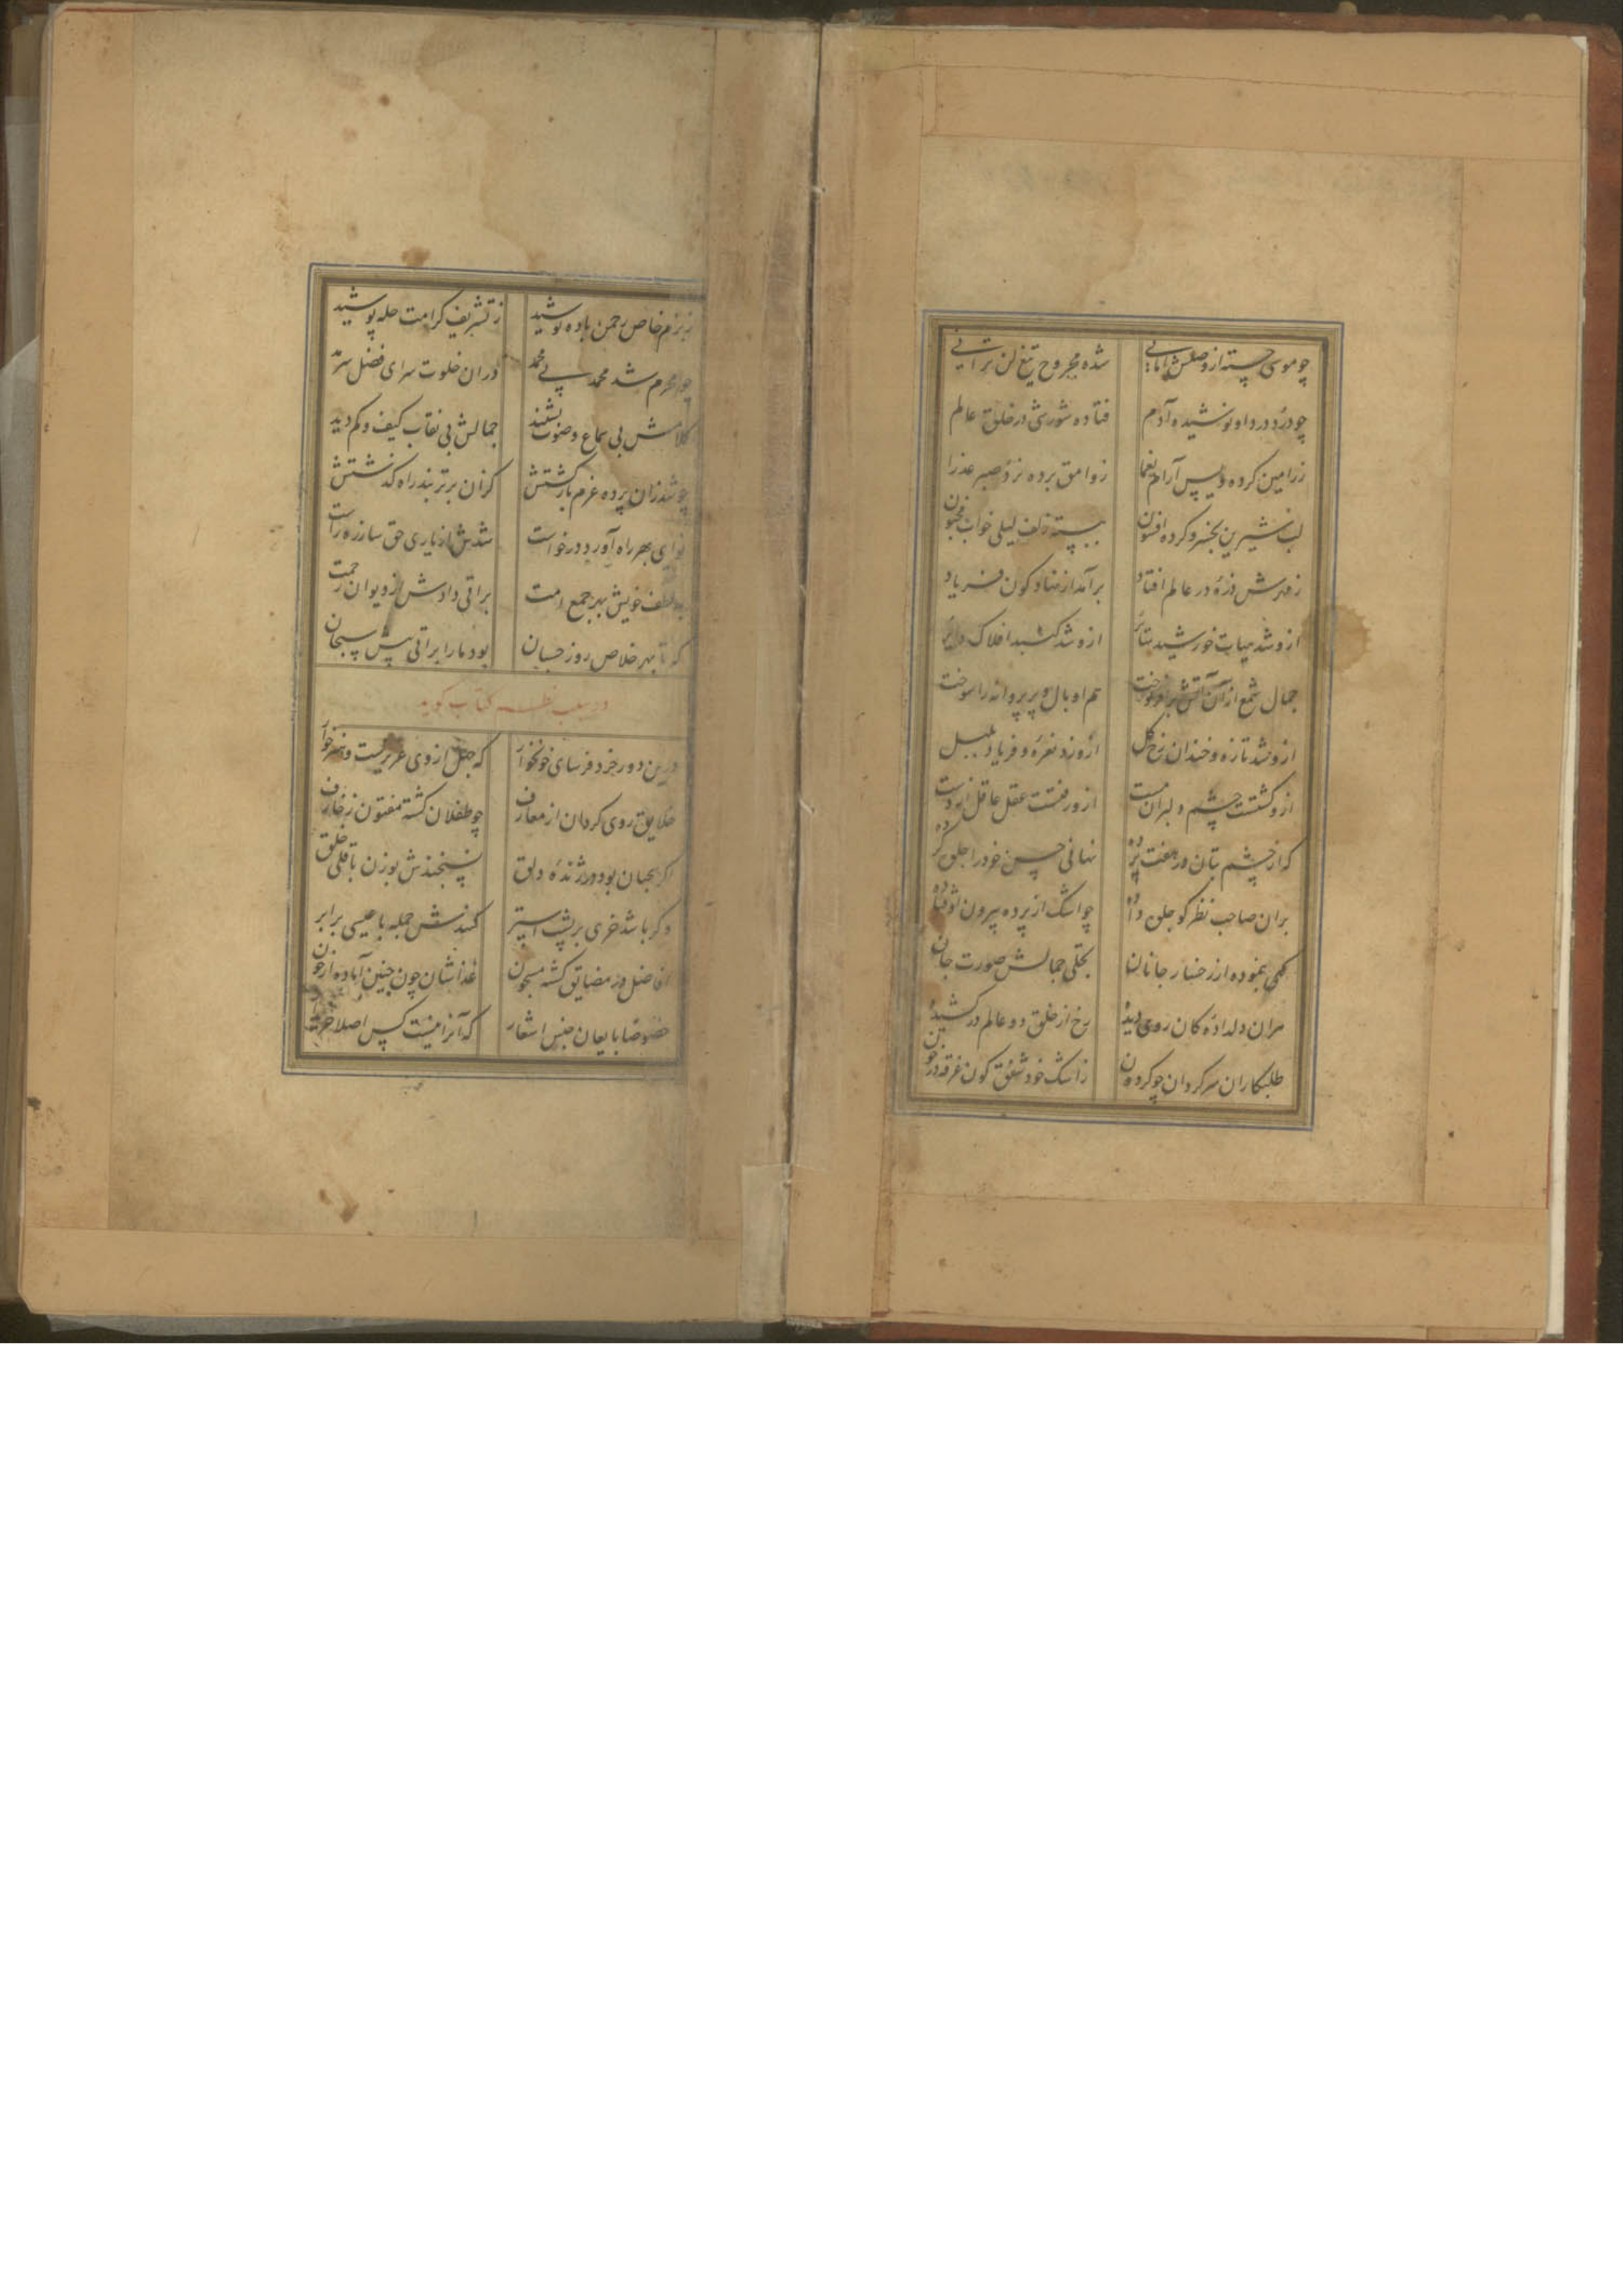 چو موسی جسته از وصلش امانی شده مجروح تیغ لن ترانی
چو درد درد او نوشیده آدم فتاده شورشی در خلق عالم
ز رامین کرده ویس آرام یغما ز وامق برده نزد صبر عذرا
لب شیرین بخسرو کرده افسون ببسته زلف لیلی خواب مجنون
ز مهرش ذره در عالم افتاد برآمد از نهاد کون فریاد
ازو شد جهات خورشید ازو شد گنبد افلاک دایر
جمال شمع از آن آتش برافروخت هم او بال و پر پروانه را سوخت
ازو شد تازه و خندان رخ گل ازو زد نعره و فریاد بلبل
ازو گشتست چشم دلبران مست ازو رفتست عقل عاقل از دست
که از چشم بتان در هفت پرده نهانی حسن خود را جلوه کرده
بران صاحب نظر کو جلوه داده چو اشک از پرده بیرون اوفتاده
کهی بنموده از رخسار جانان تجلی جمالش صورت جان
مران دلداده کان روی دیده رخ از خلق دو عالم درکشیده
طلبکاران سرگردان چو گردون ز اشک خود شفق گون غرقه در خون
ز بزم خاص رحمن باده نوشید ز تشریف کرامت حله پوشید
چو محرم شد محمد بی محمد در ان خلوت سرای فضل سرمد
کلامش بی سماع و صوت بشنید جمالش بی نقاب کیف و کم دید
چو شد زان پرده عزم بازگشتش کزان برتر نبد راه گذشتش
نوای بهر راه آورد درخواست شدش از یاری حق ساز ره راست
لطف خویش بهر جمع امت براتی دادش از دیوان رحمت
که تا بهر خلاص روز حسبان بود ما را براتی پیش سبحان
در سبب نظم کتاب گوید
درین دور خرد فرسای خونخوار که جهل از وی عزیزست و هنر خوار
خلایق روی گردان از معارف چو طفلان گشته مفتون زخارف
اگر بود در ژنده دلق نسنجندش بوزن با قلی خلق
و گر باشد خری بر پشت استر کنندش جمله با عیسی برابر
افاضل در مضایق گشته مسجون غذاشان چون جنین آماده از خون
خصوصا بایعان جنس اشعار که آنرا نیست کس اصلا خریدار